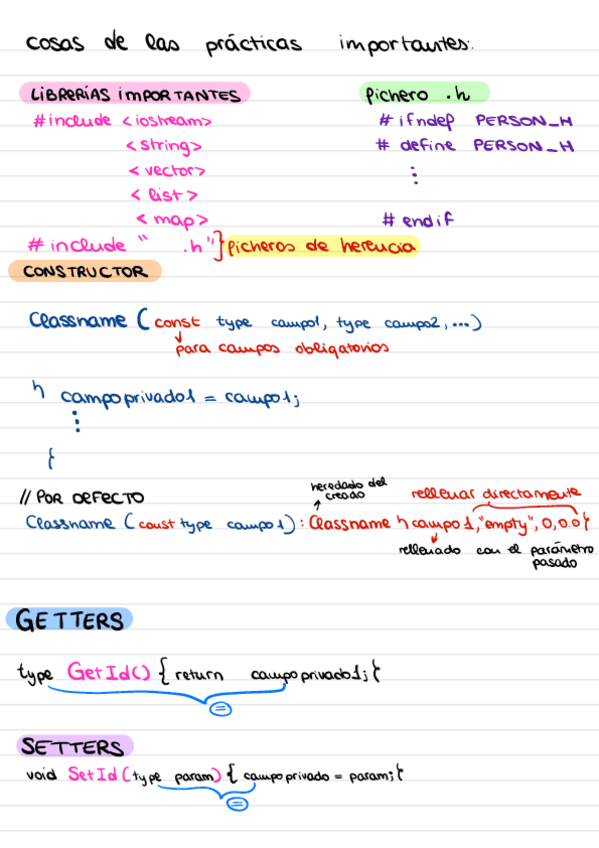 cosas de las prácticas importantes:
LIBRERÍAS IMPORTANTES
#include <iostream>
<string>
<vector>
<list>
<map>
#include " .h" } ficheros de herencia
fichero .h
# ifndef PERSON_H
# define PERSON_H
⋮
# endif
CONSTRUCTOR
Classname (const type campo1, type campo2, ...)
para campos obligatorios
{ campoprivado1 = campo1;
⋮
}
// POR DEFECTO
heredado del creado
rellenar directamente
Classname (const type campo1): Classname {campo1,"empty",0,0.0}
rellenado con el parámetro pasado
GETTERS
type GetId() { return campoprivado1; }
=
SETTERS
void SetId (type param) { campoprivado = param; }
=